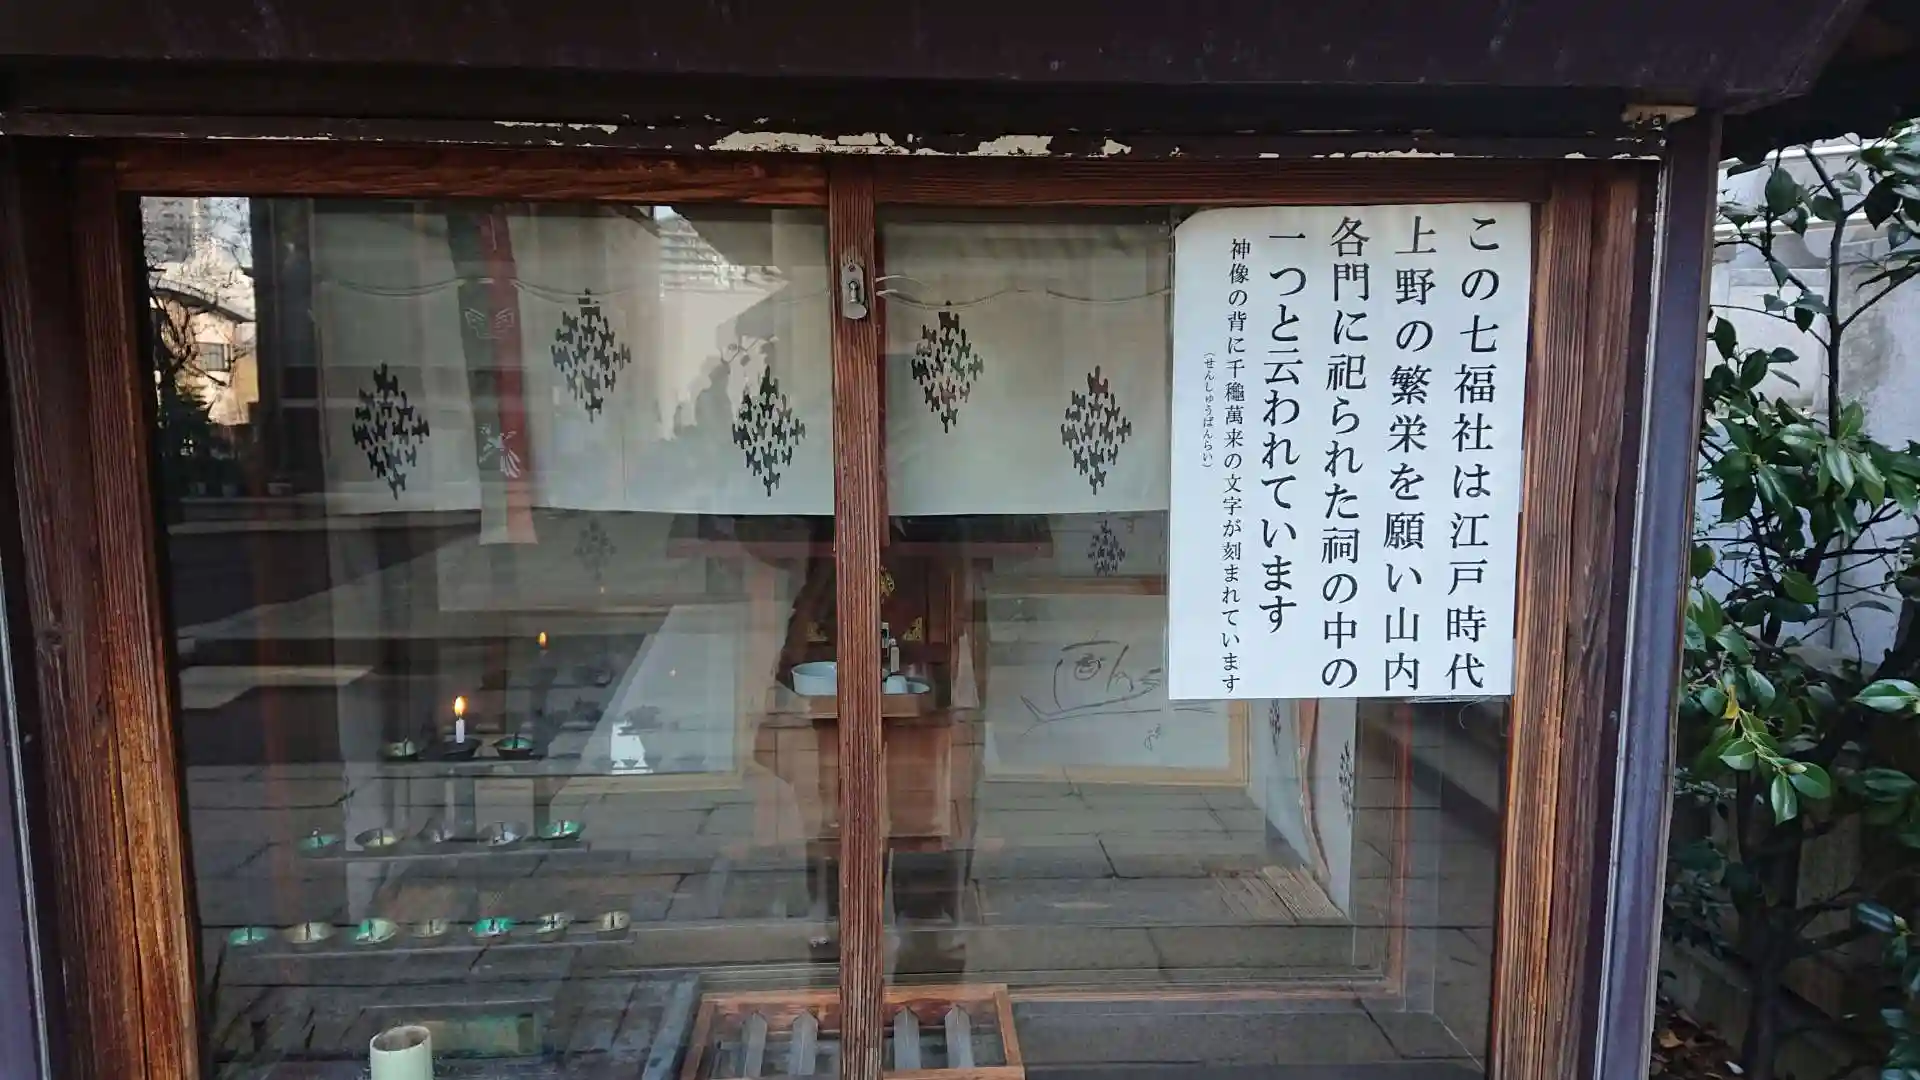 この七福社は江戸時代
上野の繁栄を願い山内
各門に祀られた祠の中の
一つと云われています
神像の背に千龝萬来の文字が刻まれています
(せんしゅうばんらい)